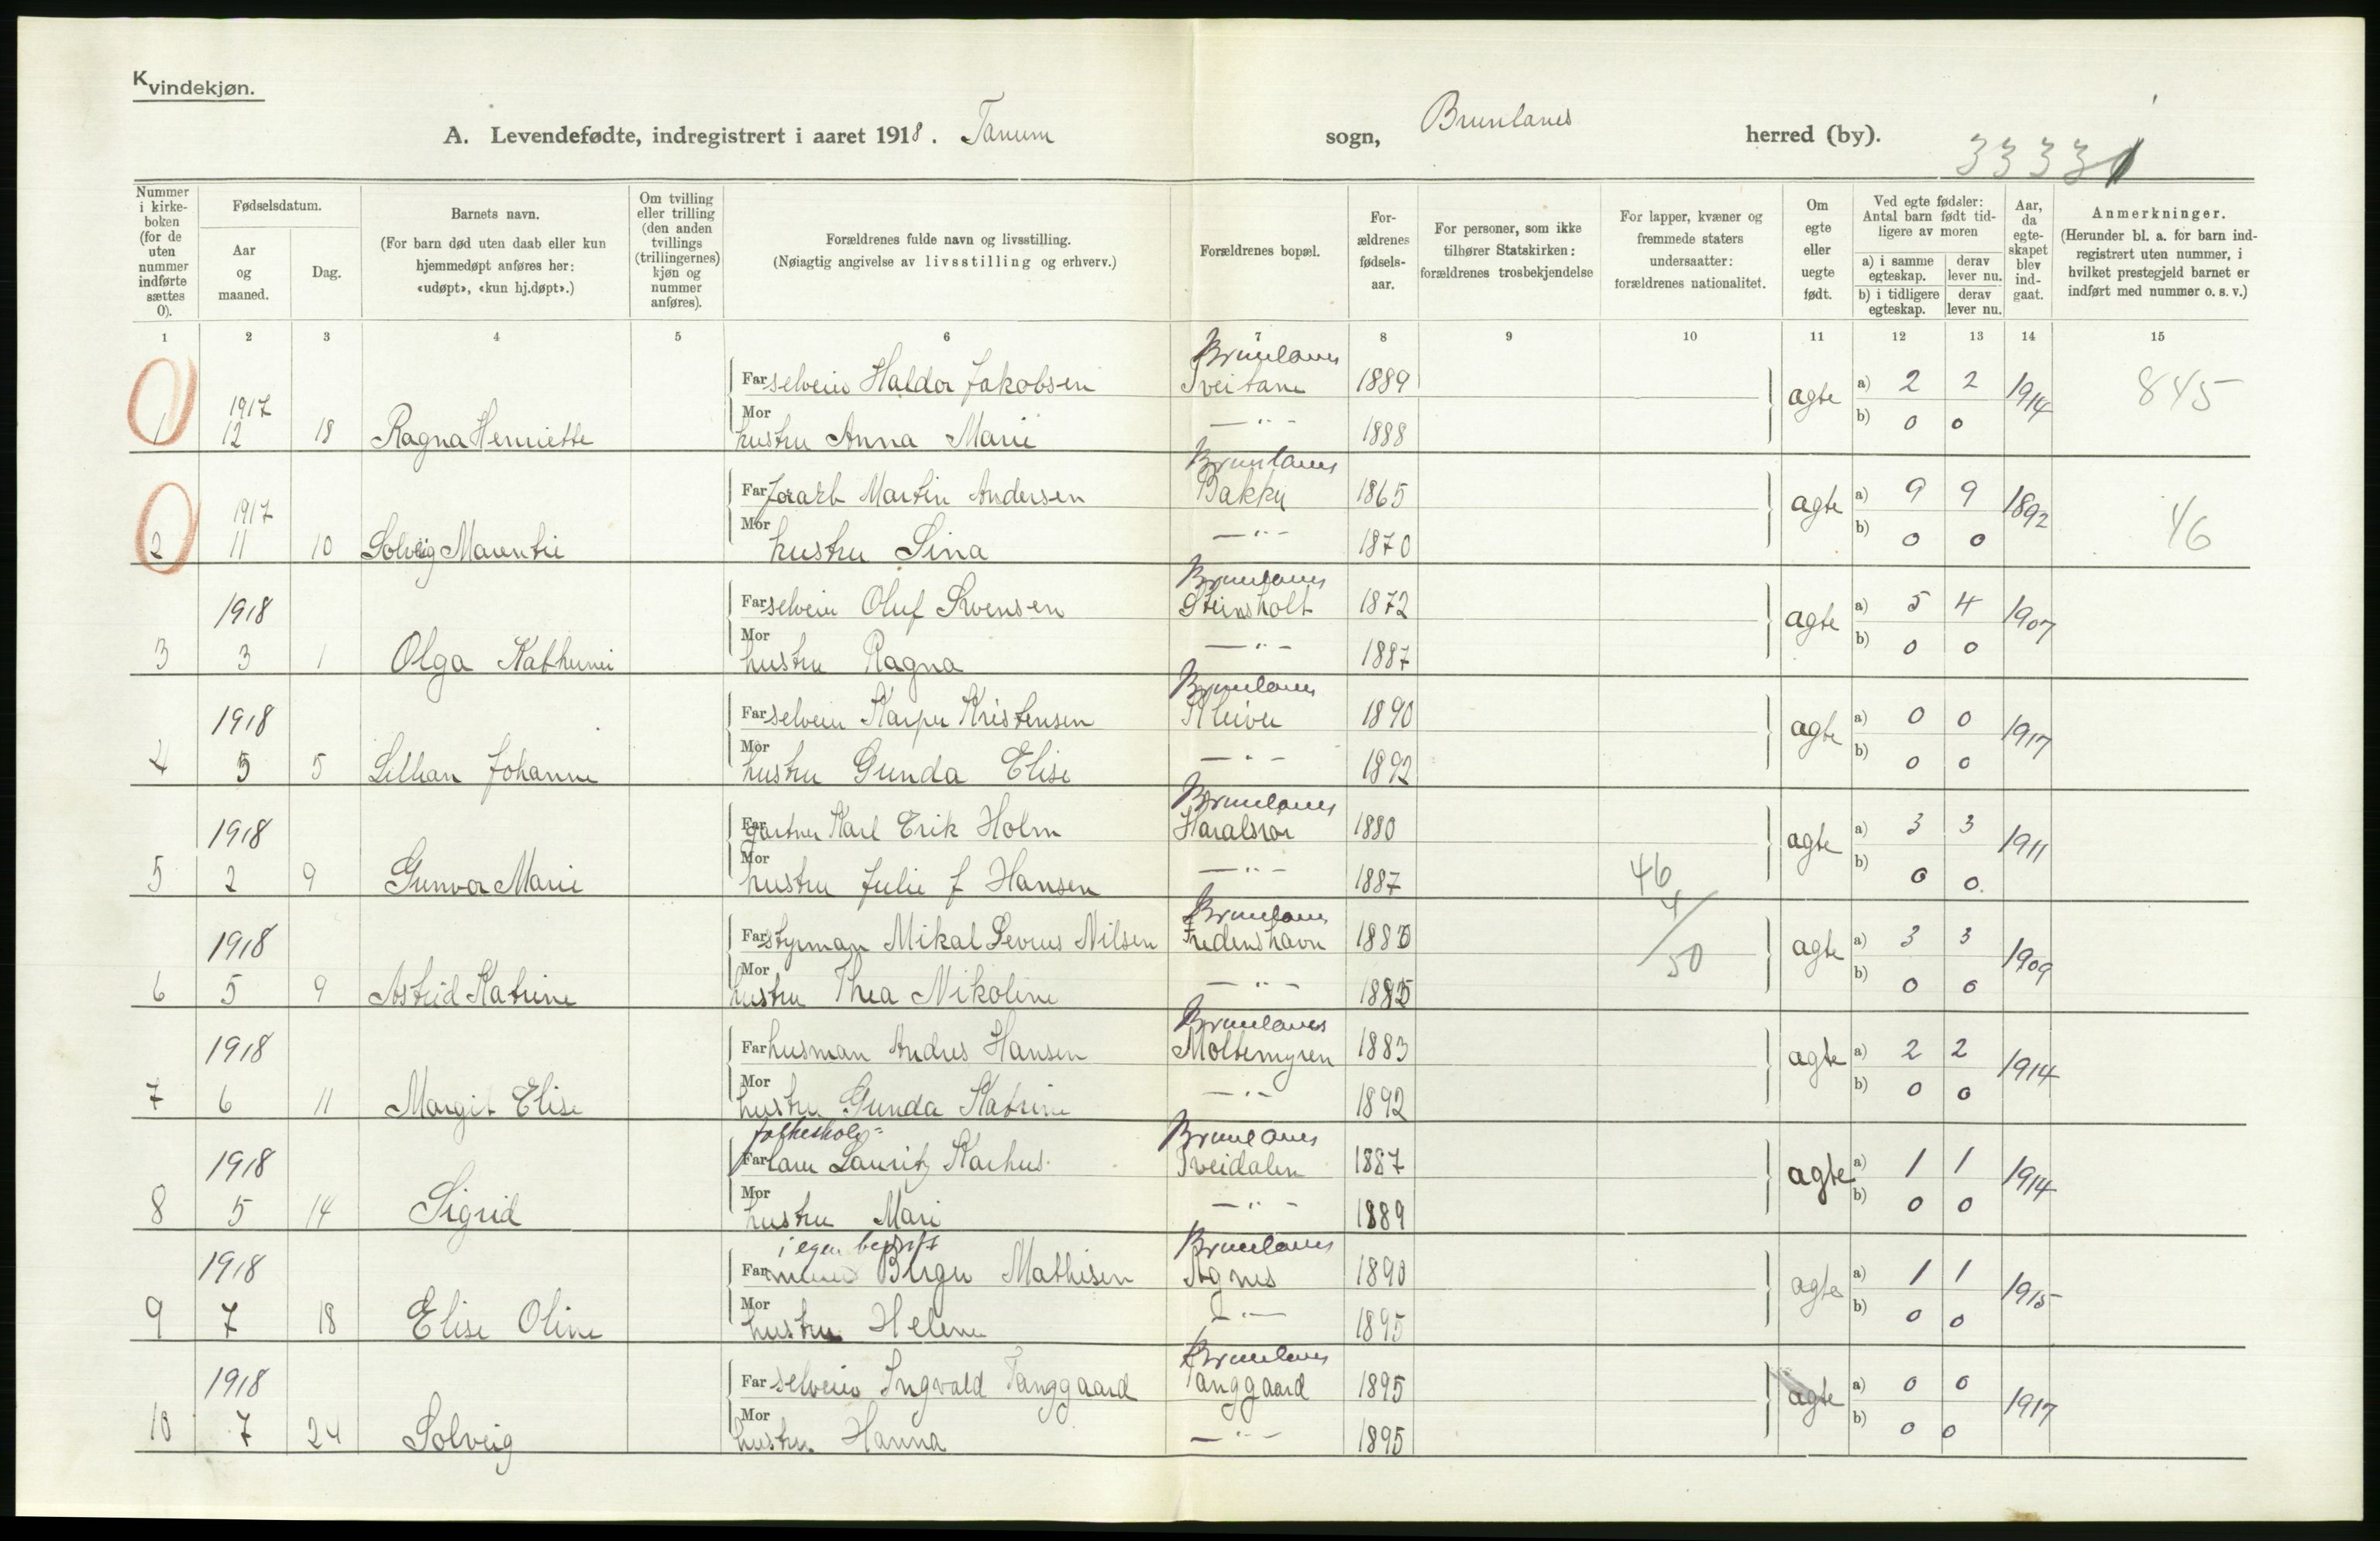 Kvindekjøn.
A. Levendefødte, indregistrert i aaret 1918. Tanum sogn, Brunlanes herred (by).
3333
Nummer i kirkeboken (for de uten nummer indførte sættes 0).
Fødselsdatum.
Aar og maaned.
Dag.
Barnets navn.
(For barn død uten daab eller kun hjemmedøpt anføres her: «udøpt», «kun hj.døpt».)
Om tvilling eller trilling (den anden tvillings (trillingernes) kjøn og nummer anføres).
Forældrenes fulde navn og livsstilling.
(Nøiagtig angivelse av livsstilling og erhverv.)
Forældrenes bopæl.
Forældrenes fødselsaar.
For personer, som ikke tilhører Statskirken: forældrenes trosbekjendelse
For lapper, kvæner og fremmede staters undersaatter: forældrenes nationalitet.
Om egte eller uegte født.
Ved egte fødsler: Antal barn født tidligere av moren
a) i samme egteskap. derav lever nu.
b) i tidligere egteskap. derav lever nu.
Aar, da egteskapet blev indgaat.
Anmerkninger.
(Herunder bl. a. for barn indregistrert uten nummer, i hvilket prestegjeld barnet er indført med nummer o. s. v.)
1 2 3 4 5 6 7 8 9 10 11 12 13 14 15
Brunlanes
Far selveier Haldor Jakobsen Tveitane 1889 agte a) 2 2 1914 845
1917
1 12 18 Ragna Henriette Mor hustru Anna Marie —"— 1888 b) 0 0
Brunlanes
Far Martin Andersen Bakke 1865 agte a) 9 9 1892 46
1917
2 11 10 Solveig Marentie Mor hustru Sina —"— 1870 b) 0 0
Brunlanes
1918 Far selveier Oluf Svensen Steinsholt 1872 agte a) 5 4 1907
3 3 1 Olga Kathrine Mor hustru Ragna —"— 1887 b) 0 0
Brunlanes
1918 Far selveier Kasper Kristensen Kleiver 1890 agte a) 0 0 1917
4 5 5 Lillian Johanne Mor hustru Gunda Elise —"— 1892 b) 0 0
Brunlanes
1918 Far gartner Karl Erik Holm 1880 agte a) 3 3 1911
5 2 9 Gunvor Marie Mor hustru Julie J Hansen —"— 1887 46 b) 0 0
4
Brunlanes
1918 Far styrman Mikal Severus Nilsen Fredenshavn 50 agte a) 3 3 1909
6 5 9 Astrid Katrine Mor hustru Thea Nikoline —"— b) 0 0
Brunlanes
1918 Far husman Andres Hansen Moltemyren 1883 agte a) 2 2 1914
7 6 11 Margit Elise Mor hustru Gunda Katrine —"— 1892 b) 0 0
folkeskole= Brunlanes
1918 Far lærer Lauritz Karhus Tveidalen 1887 agte a) 1 1 1914
8 5 14 Sigrid Mor hustru Mari —"— 1889 b) 0 0
i egen bedrift Brunlanes
1918 Far Birger Mathisen Agnes 1890 agte a) 1 1 1915
9 7 18 Elise Oline Mor hustru Helene —"— 1895 b) 0 0
Brunlanes
1918 Far selveier Ingvald Tanggaard Tanggaard 1895 agte a) 0 0 1917
10 7 24 Solveig Mor hustru Hanna —"— 1895 b) 0 0